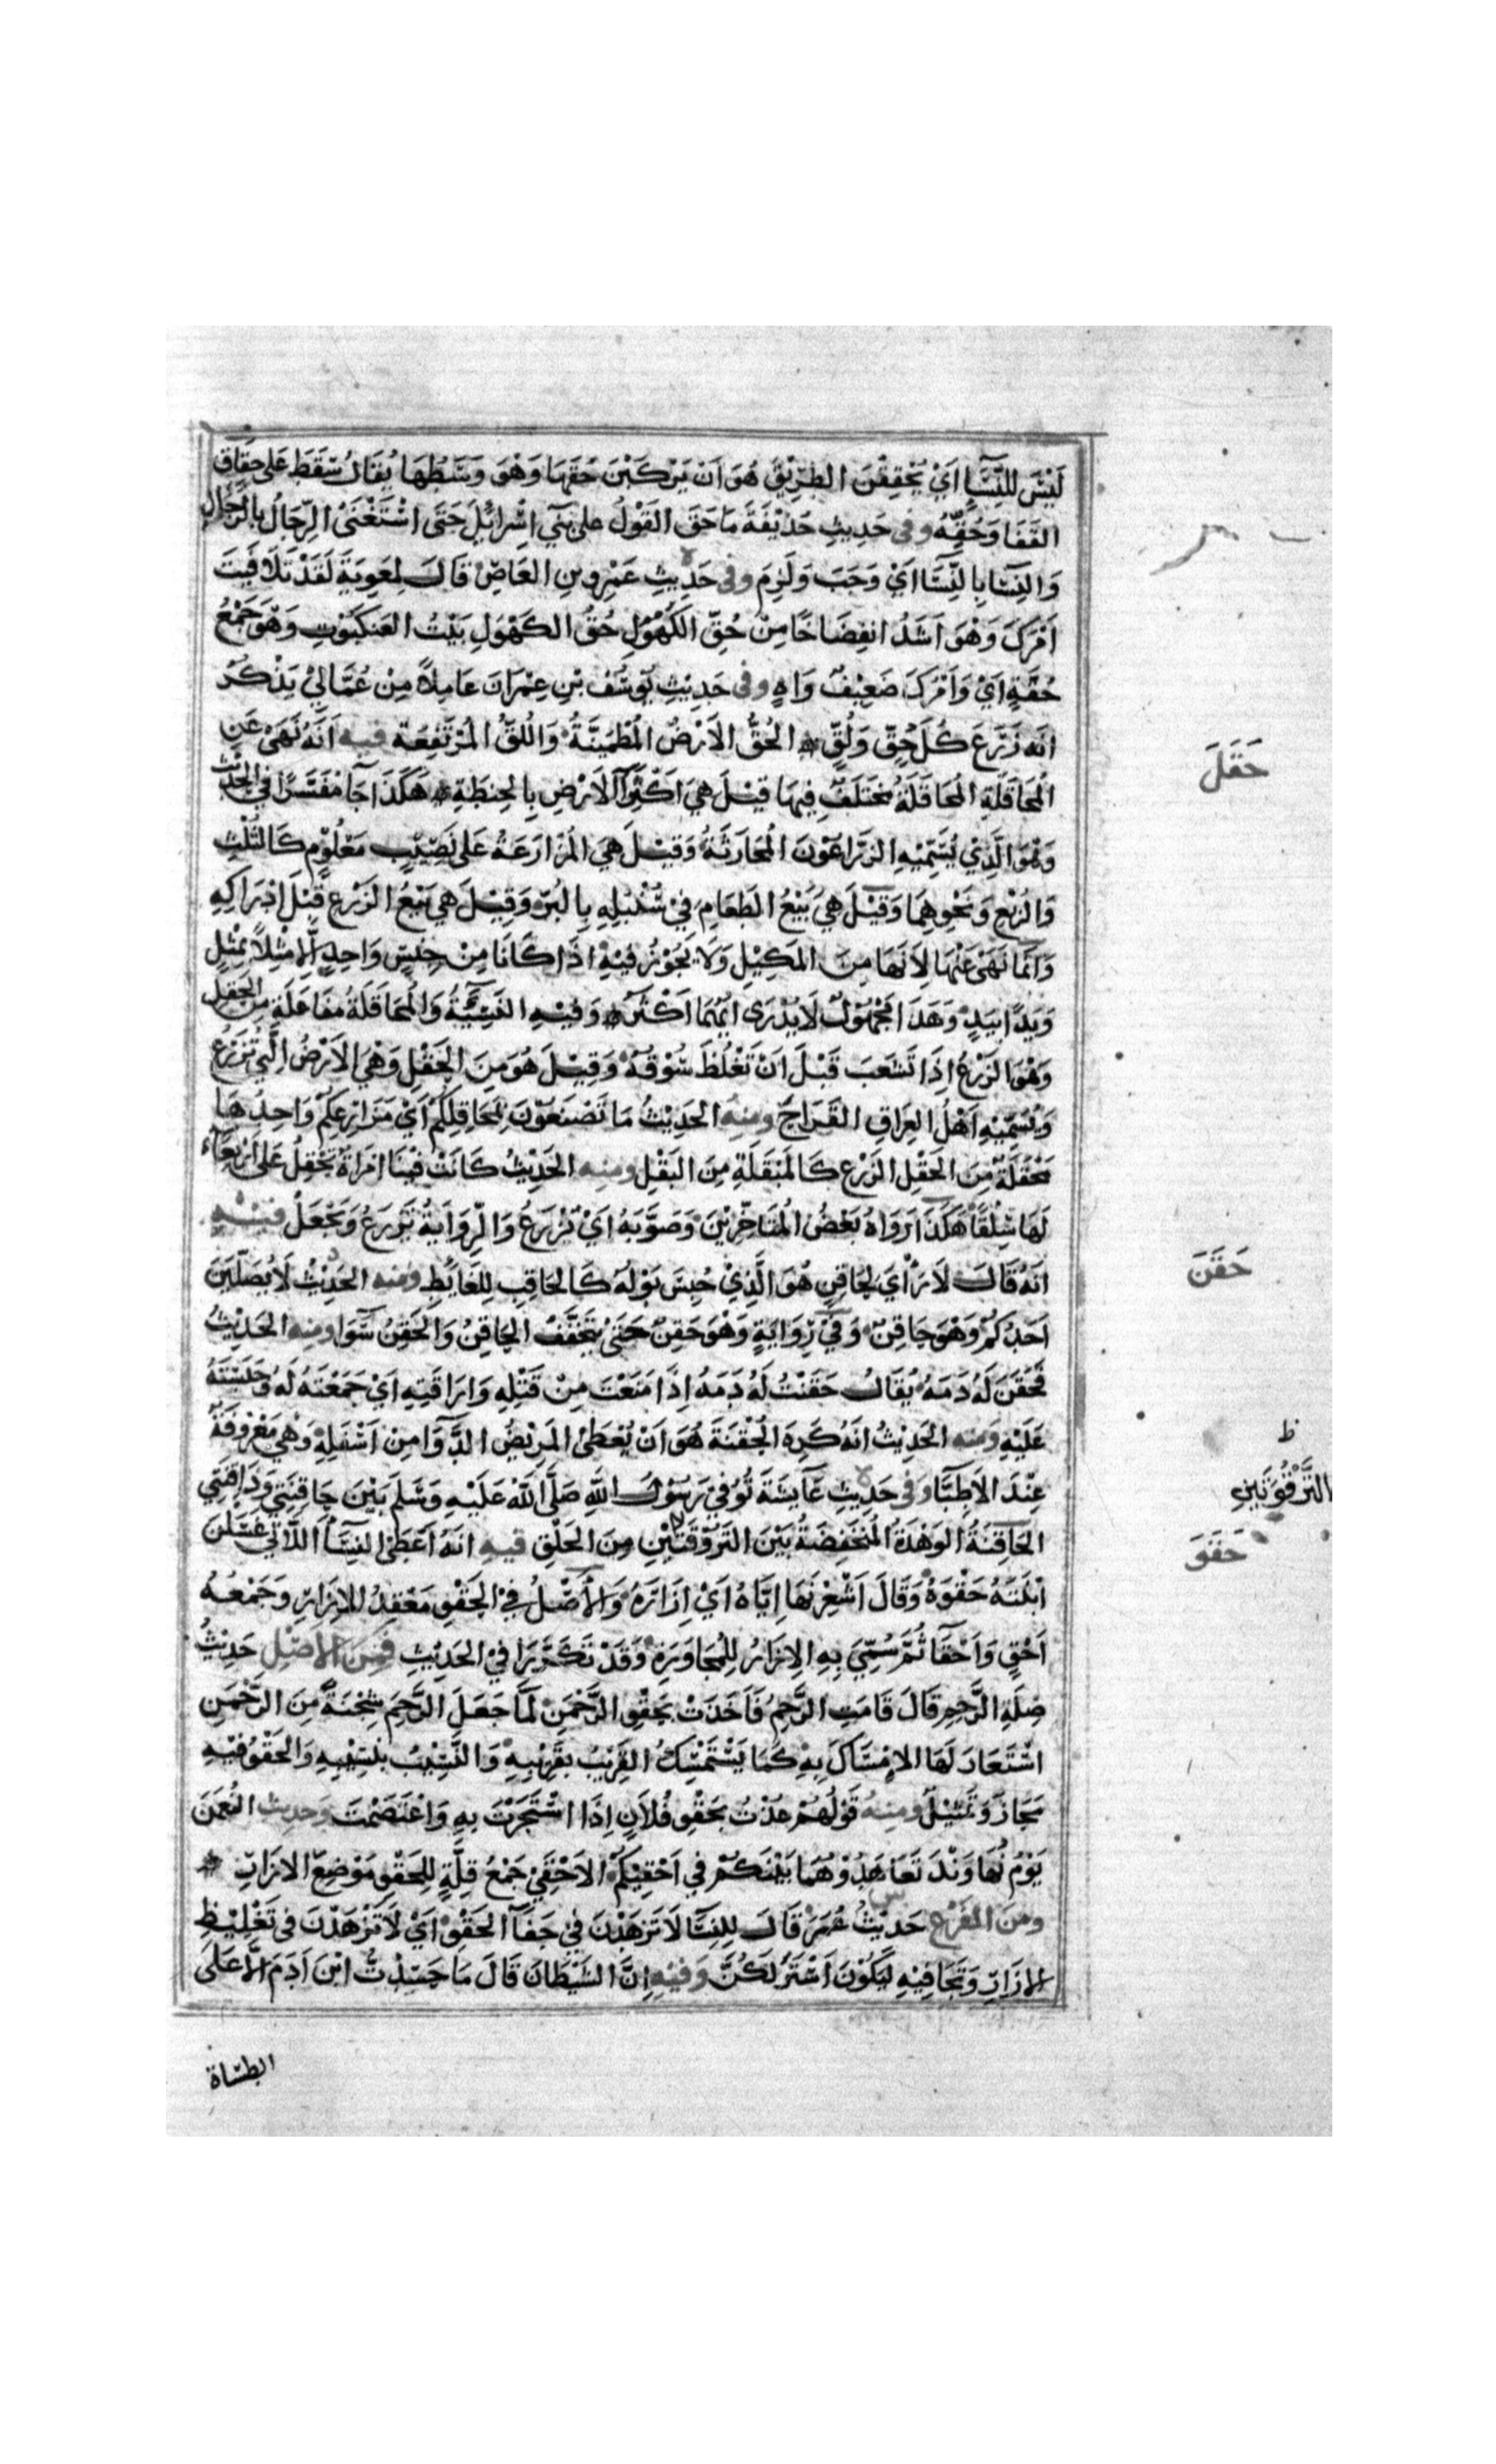 لَيْسَ لِلنِّسَاءِ اَيْ يُحَقِقْنَ الطَّرِيْقَ هُوَ اَنْ يَرْكَبْنَ حُقَّهَا وَهُوَ وَسَطُهَا يُقَالُ سَقَطَ عَلى حِقَاقِ
القَفَا وَحُقِّهِ وفى حَدِيثِ حُذَيْفَةَ مَا حَقَّ القَوْلُ على بَنِي اِسْرائِيْلَ حَتَى اسْتَغْنَى الرِّجَالُ بِالرِّجَالِ
وَالنِّسَا بِالنِّسَا اَيْ وَجَبَ وَلَزِمَ وفى حَدِيثِ عَمْرِو بنِ العَاصِ قَالَ لِمُعٰوِيَةَ لَقَدْ تَلَافَيْتَ
اَمْرَكَ وَهُوَ اَشَدُّ انفِضَاخًا مِنْ حُقِّ الكَهُوْلِ حُقُّ الكَهْوَلِ بَيْتُ العَنكَبُوْتِ وَهُوَ جَمْعُ
حُقَّةٍ اَيْ وَاَمْرُكَ ضَعِيْفٌ وَاهٍ وفى حَدِيْثِ يُوسُفَ بْنِ عِمْرَانَ عَامِلاً مِنْ عُمَّالِيْ يَذْكُرُ
اَنَّه زَرَعَ كُلَّ حُقٍّ وَلُقٍّ الحُقُّ الاَرْضُ المُطْمَئِنَّةُ وَاللُّقُّ المُرْتَفِعَة فيه اَنَّهُ نَهَىْ عَنِ
المُحَاقَلَةِ المُحَاقَلَةُ مُختَلَفٌ فِيهَا قِيْلَ هِيَ اكْتِرَاُ الاَرْضِ بِالحِنطَةِ هَكَذَا جَآ مُفَسَّرًا فِي الحَدِيْثِ
وَهُوَ الَّذِيْ يُسَمِّيْهِ الزَّرَّاعُوْنَ المُحَارَثَةُ وَقِيْلَ هِيَ المُزَارَعَةُ عَلى نَصِيْبٍ مَعْلُوْمٍ كَالثُلُثِ
وَالرُبْعِ وَنَحْوِهِمَا وَقِيْلَ هِيَ بَيْعُ الطَعَامِ فِيْ سُنْبُلِهِ بِالبُرّ وَقِيْلَ هِيَ بَيْعُ الزَرْعِ قَبْلَ اِدْرَاكِهِ
وَاِنَّمَا نَهَى عَنْهَا لِاَنَهَا مِنَ المَكِيْلِ وَلَا يَجُوْزُ فِيْهِ اِذَا كَانَا مِنْ جِنْسٍ وَاحِدٍ اِلَّا مِثْلاً بِمْثْلٍ
وَيَدًا بِيَدٍ وَهَذَا مَجْهُوْلٌ لَا يُدْرَى اَيُّهُمَا اَكْثَرُ وَفِيْهِ النَّسِيْئَةُ وَالمُحَاقَلَةُ مُفَاعَلَة مِنَ الحَقْلِ
وَهُوَ الزَرْعُ اِذَا تَشَعَبَ قَبْلَ اَنْ تَغْلُظَ سُوْقُهُ وَقِيْلَ هُوَ مِنَ الحَقْلِ وَهْيَ الاَرْضُ الَّتِي تُزْرَعُ
وَيُسَمِّيْهِ اَهْلُ العِرَاقِ القَرَاحَ ومنه الحَدِيْثُ مَا تَصْنَعُوْنَ بِمَحَاقِلِكُمْ اَيْ مَزَارِعِكُمْ وَاحِدُهَا
مَحْقَلَةٌ مِنَ الحَقْلِ الزَرْعِ كَالمَبْقَلَةِ مِنَ البَقْلِ ومنه الحَدِيْثُ كَانَتْ فِيْنَا امْرَاَةٌ تَحْقِلُ عَلى اَرْبِعَاءَ
لَهَا سِلْقًا هَكَذَا رَوَاهُ بَعْضُ المُتَاخِّرِيْنَ وَصَوَّبَهُ اَيْ تَزْرَعُ وَالرِّوَايَةُ تَزْرَعُ وَتَجْعَلُ فيه
اَنَهُ قَالَ لَا رَاْيَ لِحَاقِنٍ هُوَ الَّذِيْ حُبِسَ بَوْلُهُ كَالحَاقِبِ لِلغَايِطِ ومنه الحَدِيْثُ لَا يُصَلِّيَنَّ
اَحَدُكُمْ وَهْوَ حَاقِنٌ وَفِيْ رِوَايَةٍ وَهْوَ حَقِنٌ حَتَى يَتَخَفَّفَ الحَاقِنُ وَالحَقِنُ سَوَا ومنه الحَدِيْثُ
فَحُقِنَ لَهُ دَمَهُ يُقَالُ حَقَنْتُ لَهُ دَمَهُ اِذَا مَنَعْتَ مِنْ قَتْلِهِ وَارَاقَتِهِ اَيْ جَمَعْتَهُ لَهُ وَحَبَسْتَهُ
عَلَيْهِ ومنه الحَدِيْثُ اَنَهُ كَرِهَ الحُقْنَةَ هُوَ اَنْ يُعْطَى المَرِيْضُ الدَّوَا مِنْ اَسْفَلِهِ وَهْيَ مَعْرُوفَةٌ
عِنْدَ الاَطِبَّا وفى حَدِيْثِ عَايِشَةَ تُوُفِّيَ رَسُوْلُ اللهِ صَلَّى اللهُ عَلَيْهِ وَسَلَّم بَيْنَ حَاقِنَتِي وَذَاقِنَتِي
الحَاقِنَةُ الوَهْدَةُ المُنْخَفِضَةُ بَيْنَ التَرْوَقَتَيْنِ مِنَ الحَلْقِ فيه اَنَهُ اَعْطَى النِسَآءَ اللَّاتِي غَسَلْنَ
اَبْنَتَهُ حَقْوَهُ وَقَالَ اَشْعِرْنَهَا اِيَّاهُ اَيْ اِزَارَهُ وَالاَصْلُ فِيْ الحَقْوِ مَعْقِدُ الاِزَارِ وَجَمْعُهُ
اَحْقٍ وَاَحْقَآ ثُمَّ سُمِّيَ بِهِ الاِزَارُ لِلمُجَاوَرَةِ وَقَدْ تَكَرَّرَا فِيْ الحَدِيْثِ فمن الاصْل حَدِيْثُ
صِلَةِ الرَّحِمِ قَالَ قَامَتِ الرَّحِمُ فَاَخَذَتْ بِحَقْوِ الرَّحْمَنِ لَمَّا جَعَلَ الرَّحِمَ شِجْنَةً مِنَ الرَّحْمَنِ
اسْتَعَارَ لَهَا الاِمْسَاكَ بِهِ كَمَا يَسْتَمْسِكُ القَرِيْبُ بِقَرِيْبِهِ وَالنَّسِيْبُ بِنَسِيْبِهِ وَالحَقْوُ فِيْهِ
مَجَازٌ وَتَمْثِيْلٌ ومنه قَوْلُهُمْ عُذْتُ بِحَقْوِ فُلَانٍ اِذَا اسْتَجَرْتَ بِهِ وَاعْتَصَمْتَ وحديث النُعْمَنَ
يَوْمَ نُهَاوَنْدَ تَعَاهَدُوْ هُمَا بَيْنَكُمْ فِي اَحْقِيْكُمْ الاَحْقِيْ جَمْعُ قِلَّةٍ لِلحَقْوِ مَوْضِعِ الازَارِ
ومن الفَرْعِ حَدِيْثُ عُمَرَ قَالَ لِلنِسَا لَا تَزْهَدْنَ فِيْ جَفَآ الحَقْوِ اَيْ لَا تَزْهَدْنَ فِي تَغْلِيْظِ
الازَارِ وَتَجَافِيْهِ لِيَكُوْنَ اَسْتَرَ لَكُنَّ وفيه اِنَّ الشَيْطَانَ قَالَ مَا حَسَدْتُ ابْنَ اٰدَمَ اِلَّا عَلَى
الطساة
حَقَلَ
حَقَنَ
ظ
التَّرْقُوَتَيْنِ
حَقَوَ